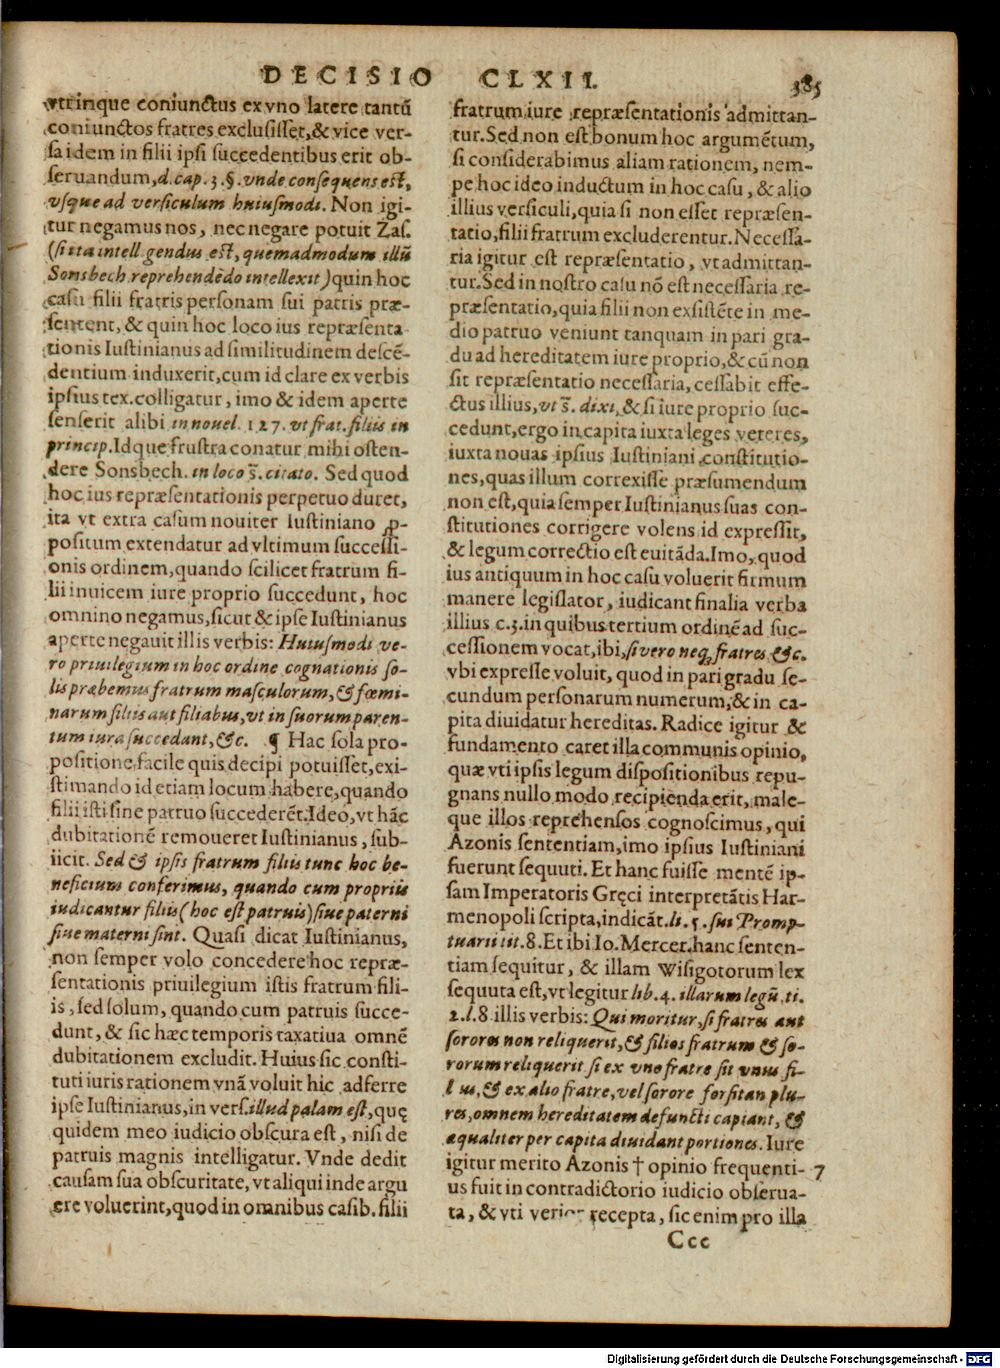 DECISIO CLXII. 385
vtrinque coniunctus ex vno latere tantũ
coniunctos fratres exclusisset, & vice ver-
sa idem in filii ipsi succedentibus erit ob-
seruandum, d. cap. 3. §. vnde consequens est,
vsque ad versiculum huiusmodi. Non igi-
tur negamus nos, nec negare potuit Zas.
(si ita intell gendus est, quemadmodum illũ
Sonsbech reprehendẽdo intellexit) quin hoc
casu filii fratris personam sui patris præ-
sentent, & quin hoc loco ius repræsenta
tionis Iustinianus ad similitudinem descẽ-
dentium induxerit, cum id clare ex verbis
ipsius tex. colligatur, imo & idem aperte
senserit alibi in nouel. 127. vt frat. filiis in
princip. Idque frustra conatur mihi osten-
dere Sonsbech. in loco s̃. citato. Sed quod
hoc ius repræsentationis perpetuo duret,
ita vt extra casum nouiter Iustiniano p-
positum extendatur ad vltimum successi-
onis ordinem, quando scilicet fratrum fi-
lii inuicem iure proprio succedunt, hoc
omnino negamus, sicut & ipse Iustinianus
aperte negauit illis verbis: Huiusmodi ve-
ro priuilegium in hoc ordine cognationis so-
lis præbemus fratrum masculorum, & fœmi-
narum filiis aut filiabus, vt in suorum paren-
tum iura succedant, &c. ¶ Hac sola pro-
positione facile quis decipi potuisset, exi-
stimando id etiam locum habere, quando
filii isti sine patruo succederẽt. Ideo, vt hãc
dubitationẽ remoueret Iustinianus, sub-
iicit. Sed & ipsis fratrum filiis tunc hoc be-
neficium conferimus, quando cum propriis
iudicantur filiis (hoc est patruis) siue paterni
siue materni sint. Quasi dicat Iustinianus,
non semper volo concedere hoc repræ-
sentationis priuilegium istis fratrum fili-
is, sed solum, quando cum patruis succe-
dunt, & sic hæc temporis taxatiua omnẽ
dubitationem excludit. Huius sic consti-
tuti iuris rationem vnã voluit hic adferre
ipse Iustinianus, in vers. illud palam est, quę
quidem meo iudicio obscura est, nisi de
patruis magnis intelligatur. Vnde dedit
causam sua obscuritate, vt aliqui inde argu
ere voluerint, quod in omnibus casib. filii
fratrum iure repræsentationis admittan-
tur. Sed non est bonum hoc argumẽtum,
si considerabimus aliam rationem, nem-
pe hoc ideo inductum in hoc casu, & alio
illius versiculi, quia si non esset repræsen-
tatio, filii fratrum excluderentur. Necessa-
ria igitur est repræsentatio, vt admittan-
tur. Sed in nostro casu nõ est necessaria re-
præsentatio, quia filii non exsistẽte in me-
dio patruo veniunt tanquam in pari gra-
du ad hereditatem iure proprio, & cũ non
sit repræsentatio necessaria, cessabit effe-
ctus illius, vt s̃. dixi, & si iure proprio suc-
cedunt, ergo in capita iuxta leges veteres,
iuxta nouas ipsius Iustiniani constitutio-
nes, quas illum correxisse præsumendum
non est, quia semper Iustinianus suas con-
stitutiones corrigere volens id expressit,
& legum correctio est euitãda. Imo, quod
ius antiquum in hoc casu voluerit firmum
manere legislator, iudicant finalia verba
illius c. 3. in quibus tertium ordinẽ ad suc-
cessionem vocat, ibi, si vero neq; fratres &c.
vbi expresse voluit, quod in pari gradu se-
cundum personarum numerum, & in ca-
pita diuidatur hereditas. Radice igitur &
fundamento caret illa communis opinio,
quæ vti ipsis legum dispositionibus repu-
gnans nullo modo recipienda erit, male-
que illos reprehensos cognoscimus, qui
Azonis sententiam, imo ipsius Iustiniani
fuerunt sequuti. Et hanc fuisse mentẽ ip-
sam Imperatoris Gręci interpretãtis Har-
menopoli scripta, indicãt. li. 5. sui Promp-
tuarii tit. 8. Et ibi Io. Mercer. hanc senten-
tiam sequitur, & illam Wisigotorum lex
sequuta est, vt legitur lib. 4. illarum legũ ti.
2. l. 8 illis verbis: Qui moritur, si fratres aut
sorores non reliquerit, & filios fratrum & so-
rorum reliquerit si ex vno fratre sit vnus fi-
l us, & ex alio fratre, vel sorore forsitan plu-
res, omnem hereditatem defuncti capiant, &
æqualiter per capita diuidant portiones. Iure
igitur merito Azonis † opinio frequenti- 7
us fuit in contradictorio iudicio obserua-
ta, & vti verior recepta, sic enim pro illa
Ccc
Digitalisierung gefördert durch die Deutsche Forschungsgemeinschaft - DFG